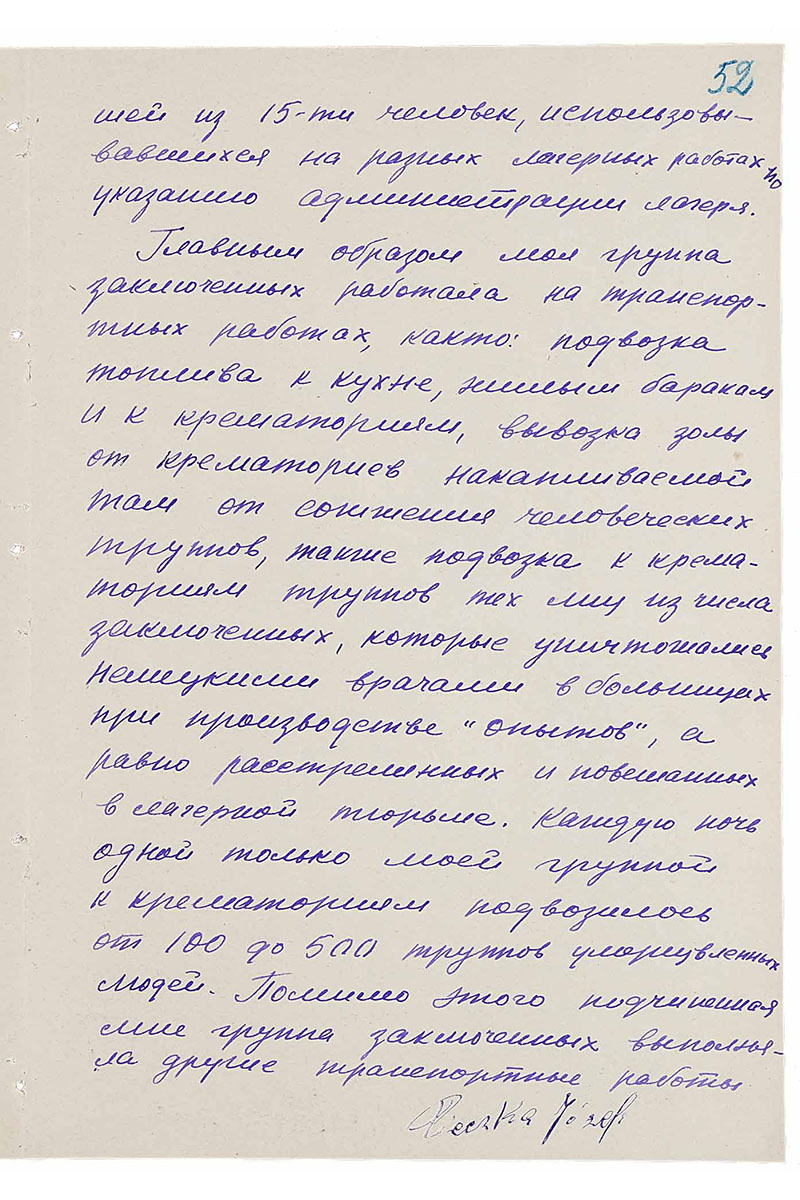 52
шей из 15-ти человек, использовы-
вавшихся на разных лагерных работах по
указанию администрации лагеря.
Главным образом моя группа
заключенных работала на транспор-
тных работах, както: подвозка
топлива к кухне, жилым баракам
и к крематориям, вывозка золы
от крематориев накапливаемой
там от сожжения человеческих
труппов, также подвозка к крема-
ториям труппов тех лиц из числа
заключенных, которые уничтожались
немецкими врачами в больницах
при производстве "опытов", а
равно расстрелянных и повешанных
в лагерной тюрьме. Каждую ночь
одной только моей группой
к крематориям подвозилось
от 100 до 500 труппов умерщвленных
людей. Помимо этого подчиненная
мне группа заключенных выполня-
ла другие транспортные работы
Józef